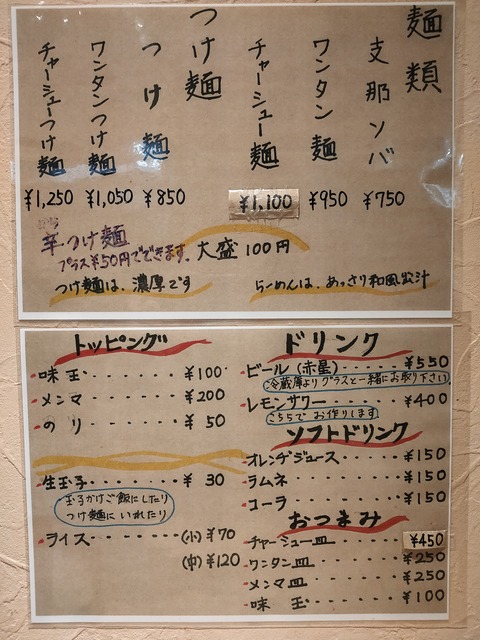 麺類
支那ソバ ¥750
ワンタン麺 ¥950
チャーシュー麺 ¥1,100
つけ麺
つけ麺 ¥850
ワンタンつけ麺 ¥1,050
チャーシューつけ麺 ¥1,250
辛つけ麺
プラス¥50円でできます。
大盛100円
つけ麺は、濃厚です
らーめんは、あっさり和風出汁
トッピング
味玉 ¥100
メンマ ¥200
のり ¥50
生玉子 ¥30
玉子かけご飯にしたり
つけ麺にいれたり
ライス (小)¥70
(中)¥120
ドリンク
ビール(赤星) ¥550
冷蔵庫よりグラスと一緒にお取り下さい
レモンサワー ¥400
こちらでお作りします
ソフトドリンク
オレンヂジュース ¥150
ラムネ ¥150
コーラ ¥150
おつまみ
チャーシュー皿 ¥450
ワンタン皿 ¥250
メンマ皿 ¥250
味玉 ¥100